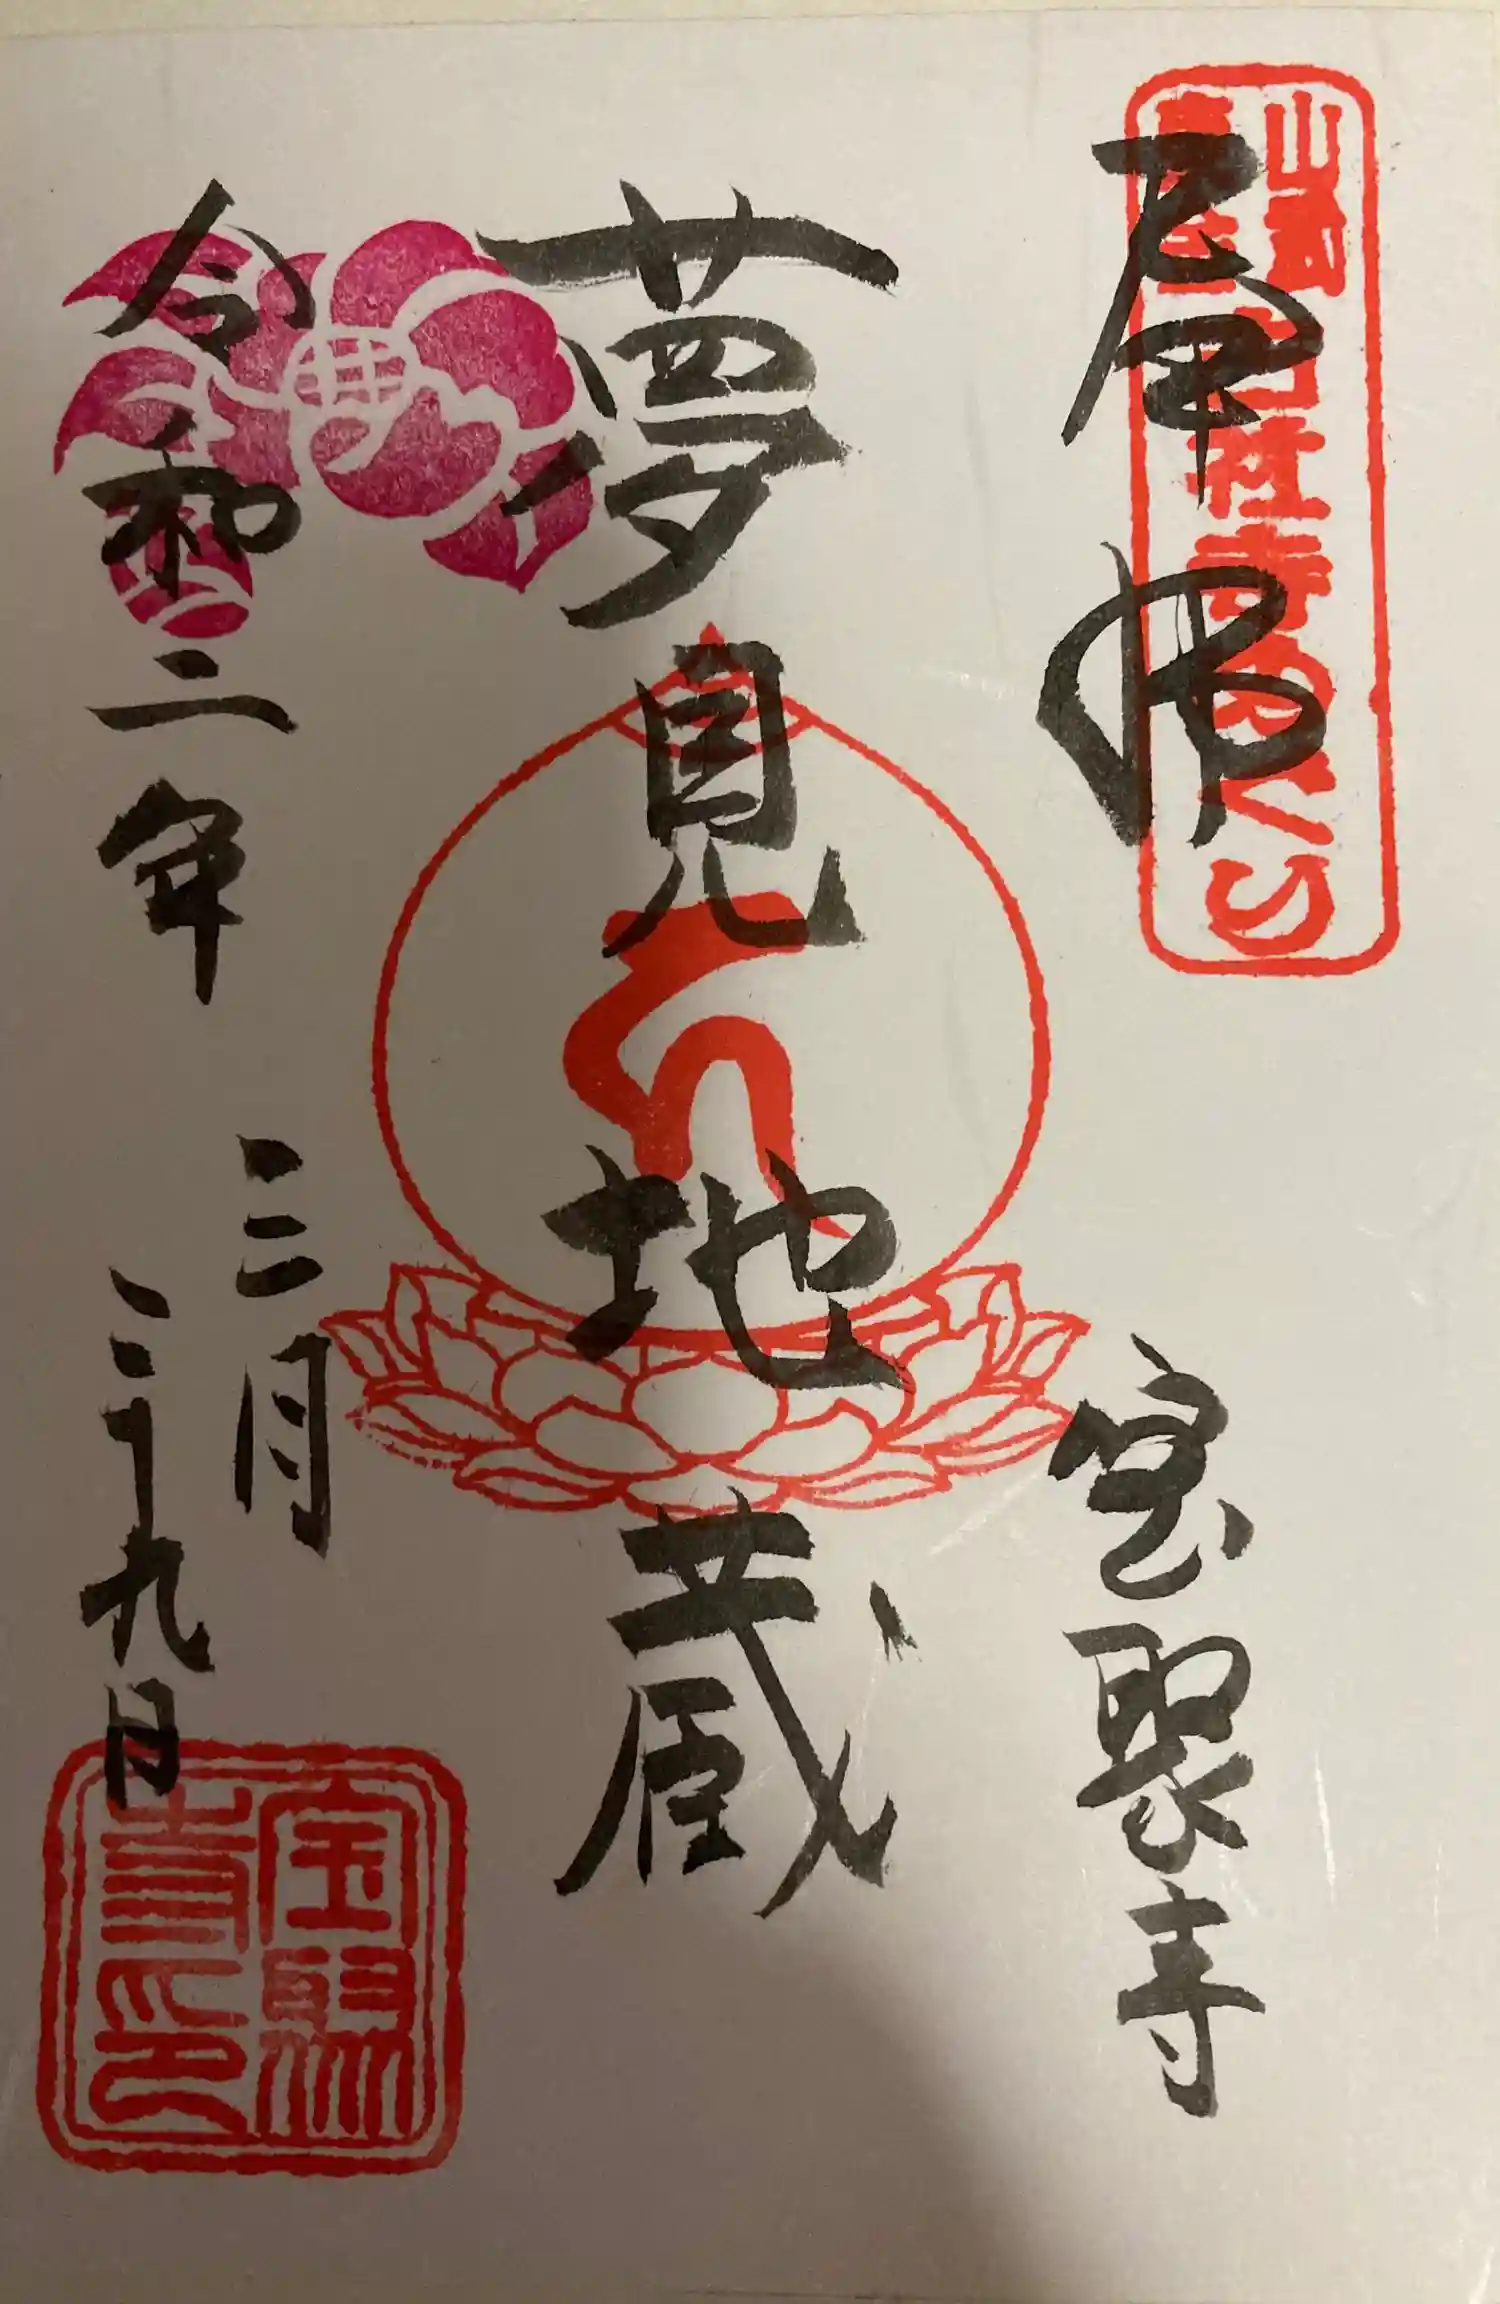 奉拝
宝聚寺
夢見地蔵
令和二年
三月
二十九日
宝聚
寺印